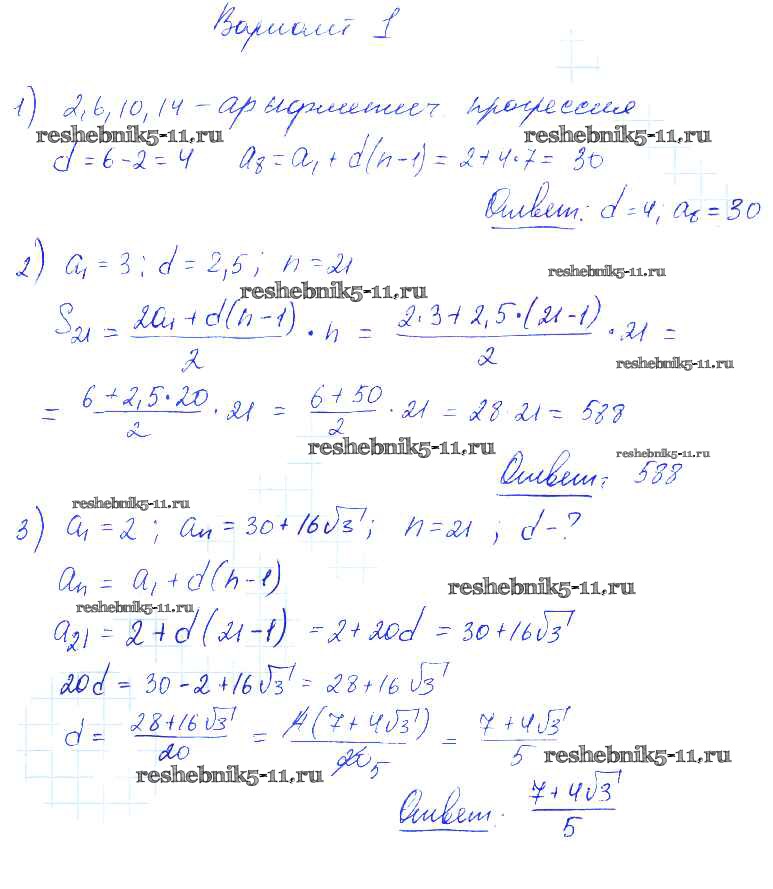 Вариант 1
1) 2, 6, 10, 14 – арифметич. прогрессия
reshebnik5-11.ru reshebnik5-11.ru
d = 6 - 2 = 4 a₈ = a₁ + d(n-1) = 2 + 4·7 = 30
Ответ: d = 4; a₈ = 30
2) a₁ = 3; d = 2,5; n = 21
reshebnik5-11.ru reshebnik5-11.ru
S₂₁ = (2a₁ + d(n-1))/2 · n = (2·3 + 2,5·(21-1))/2 · 21 =
reshebnik5-11.ru
= (6 + 2,5·20)/2 · 21 = (6 + 50)/2 · 21 = 28·21 = 588
reshebnik5-11.ru reshebnik5-11.ru
Ответ: 588
reshebnik5-11.ru
3) a₁ = 2; aₙ = 30 + 16√3; n = 21; d - ?
aₙ = a₁ + d(n-1)
reshebnik5-11.ru reshebnik5-11.ru
a₂₁ = 2 + d(21-1) = 2 + 20d = 30 + 16√3
20d = 30 - 2 + 16√3 = 28 + 16√3
d = (28 + 16√3)/20 = 4(7 + 4√3)/20 5 = (7 + 4√3)/5
reshebnik5-11.ru reshebnik5-11.ru
Ответ: (7 + 4√3)/5